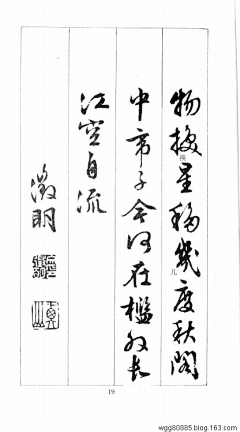 物换星移几度秋阁
中帝子今何在槛外长
江空自流
徵明
19
wgg80885.blog.163.com